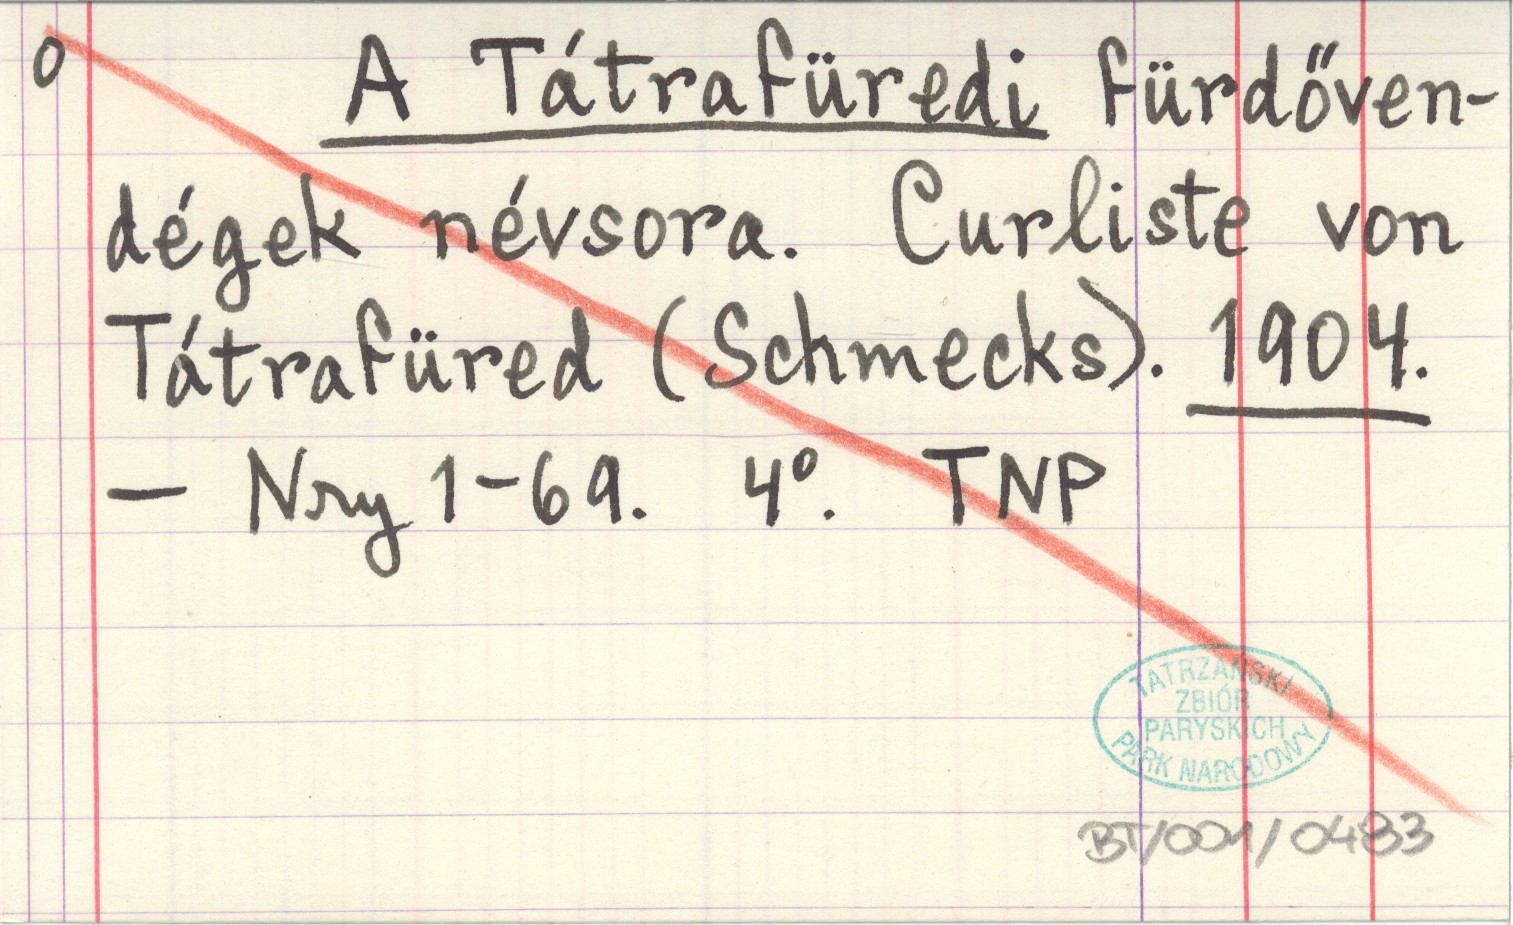 0 A Tátrafüredi fürdőven-
dégek névsora. Curliste von
Tátrafüred (Schmecks). 1904.
— Nry 1-69. 4°. TNP
TATRZAŃSKI
ZBIÓR
PARYSKICH
PARK NARODOWY
BT/001/0483